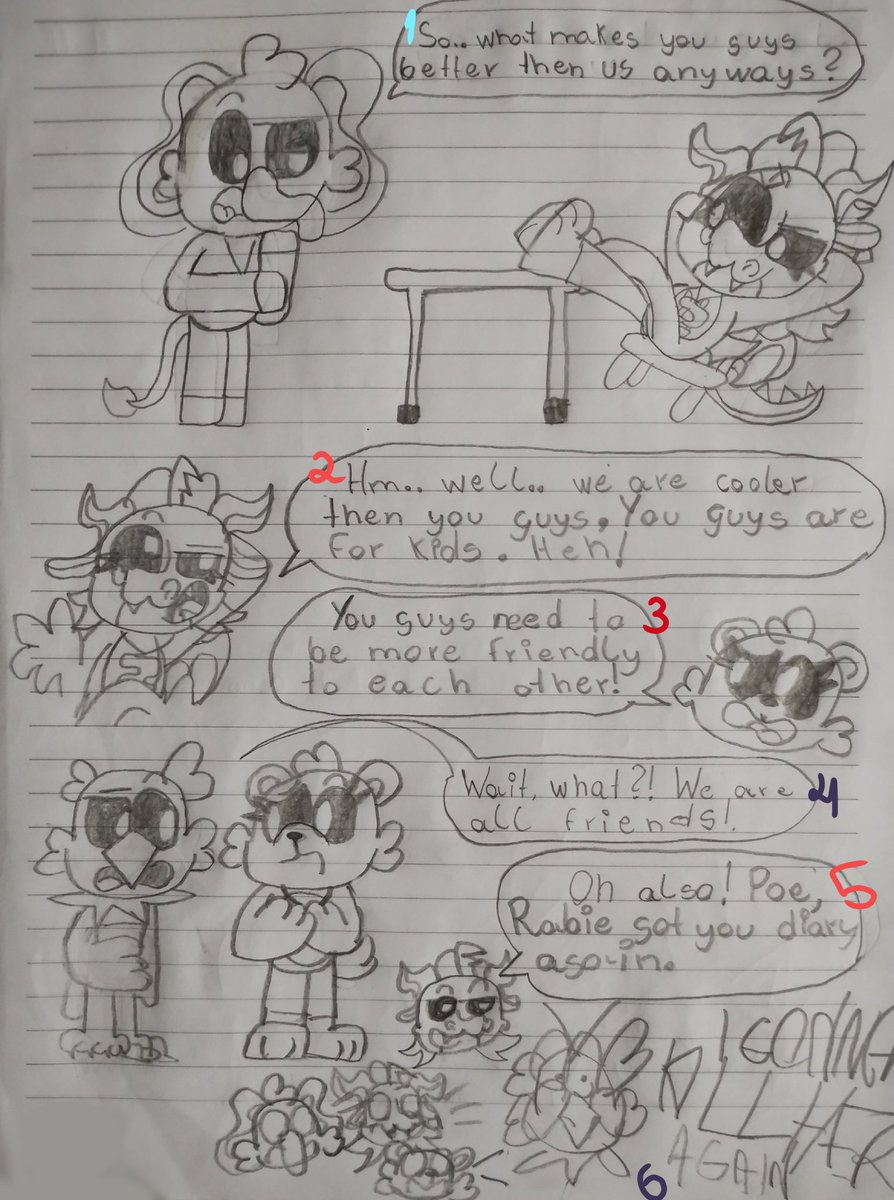 1 So.. what makes you guys
better then us anyways?
2 Hm.. well.. we are cooler
then you guys. You guys are
for kids. Heh!
You guys need to 3
be more friendly
to each other!
Wait, what?! We are 4
all friends!
Oh also! Poe, 5
Rabie got you diary
again.
I GONNA
KILL HER
AGAIN
6